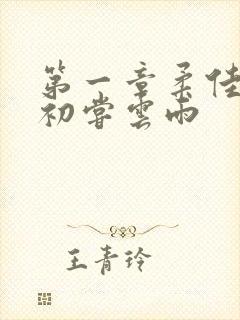 第一章柔佳
初嘗雲雨
王青玲